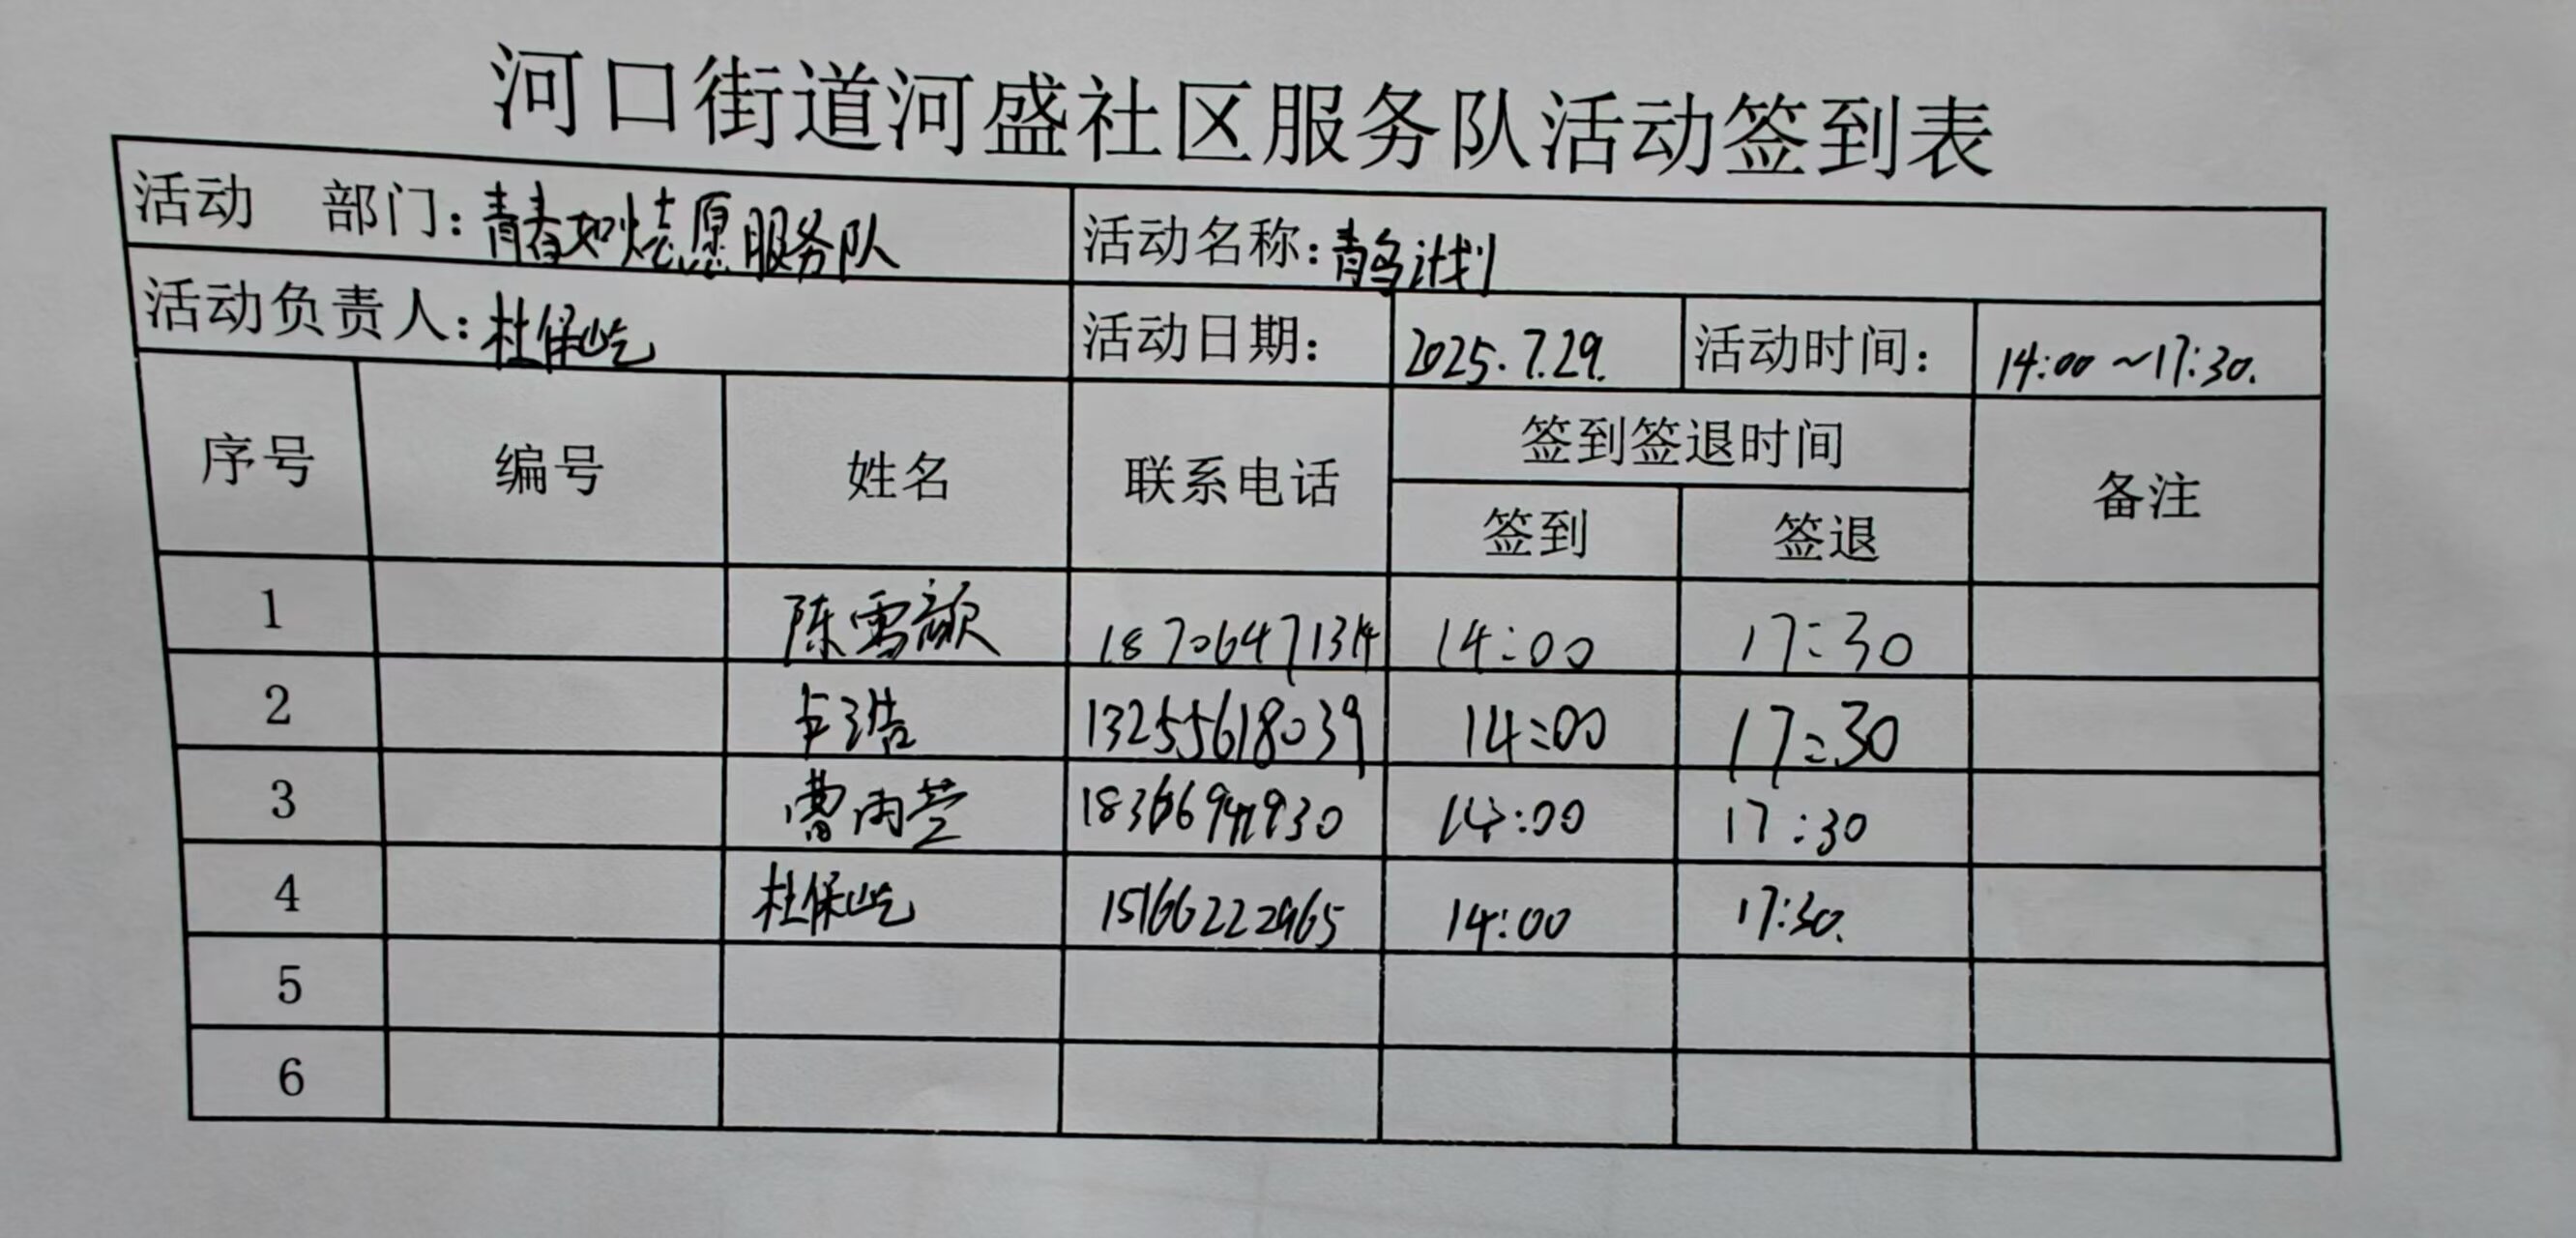 河口街道河盛社区服务队活动签到表
活动 部门：青春如火志愿服务队 活动名称：青鸟计划
活动负责人：杜保屹 活动日期： 2025.7.29. 活动时间： 14:00~17:30.
序号 编号 姓名 联系电话 签到签退时间 备注
签到 签退
1 陈雪 18706471314 14:00 17:30
2 卢浩 13255618039 14:00 17:30
3 曹雨萱 14:00 17:30
4 杜保屹 15166222965 14:00 17:30.
5
6